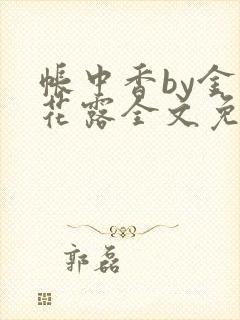 帐中香by金
花露全文免
郭磊